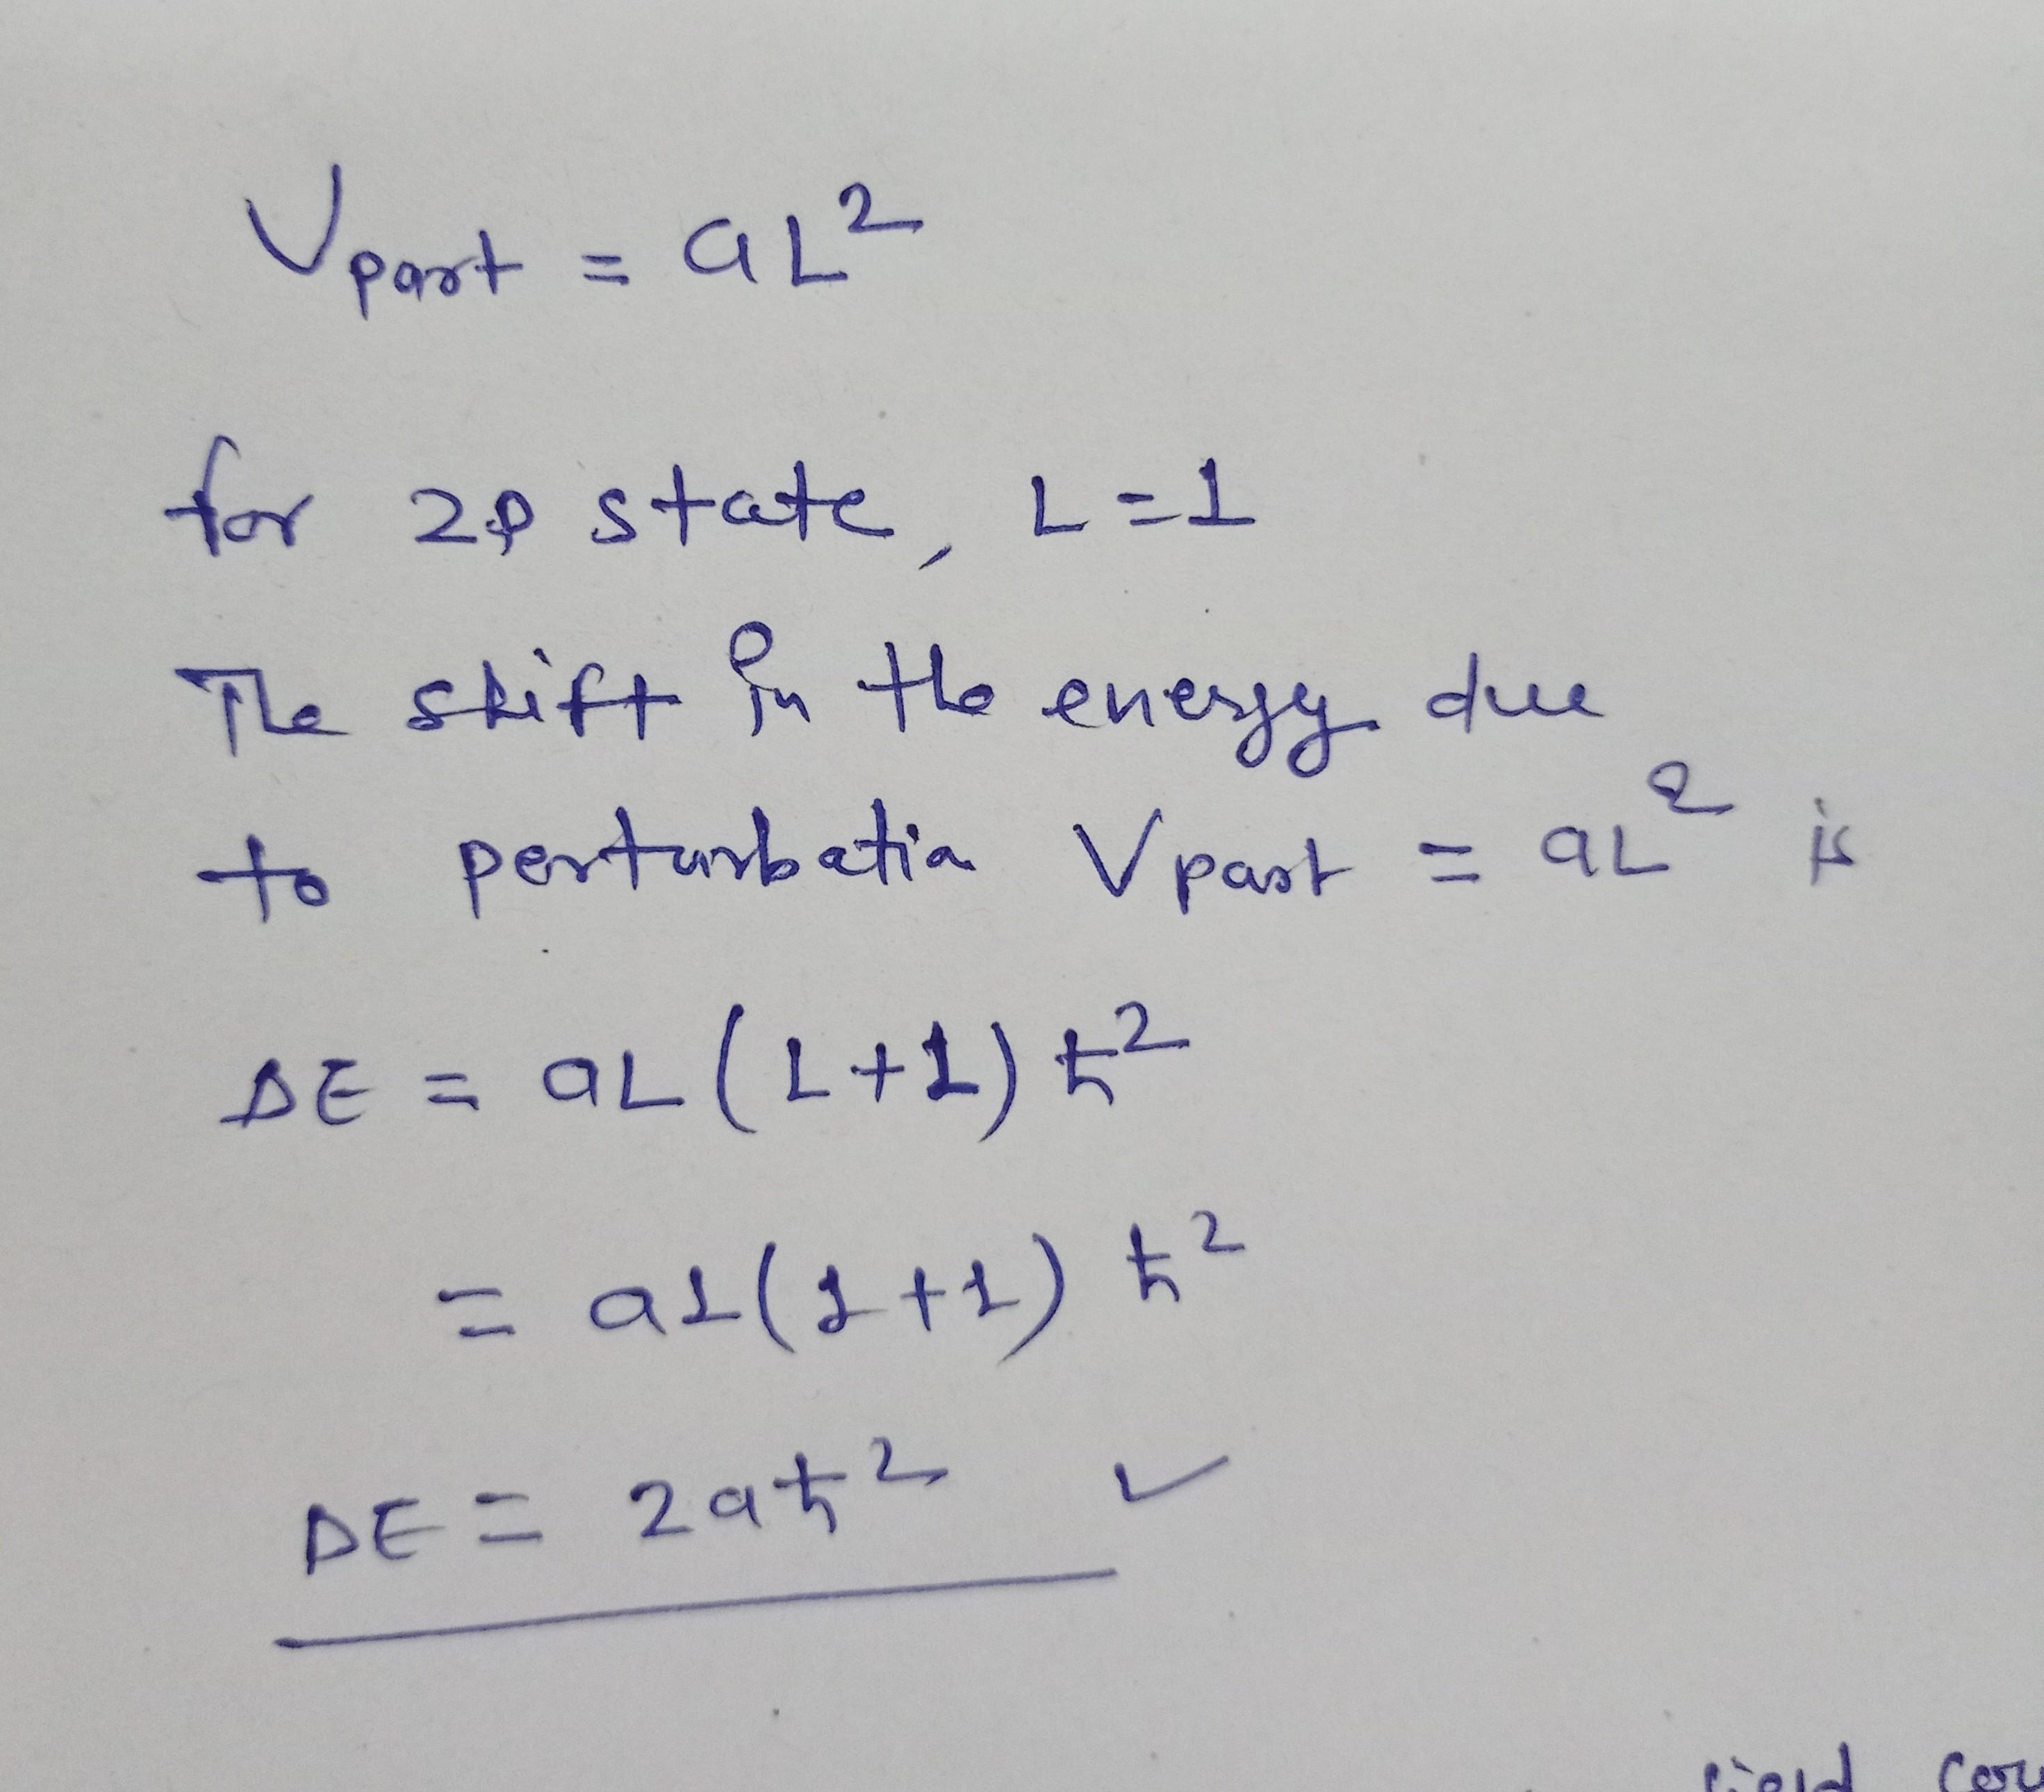 Vpart = aL²
for 2p state, L=1
The shift in the energy due
to perturbatin Vpart = aL² is
ΔE = aL(L+1)ħ²
= a1(1+1)ħ²
ΔE = 2aħ² ✓
field